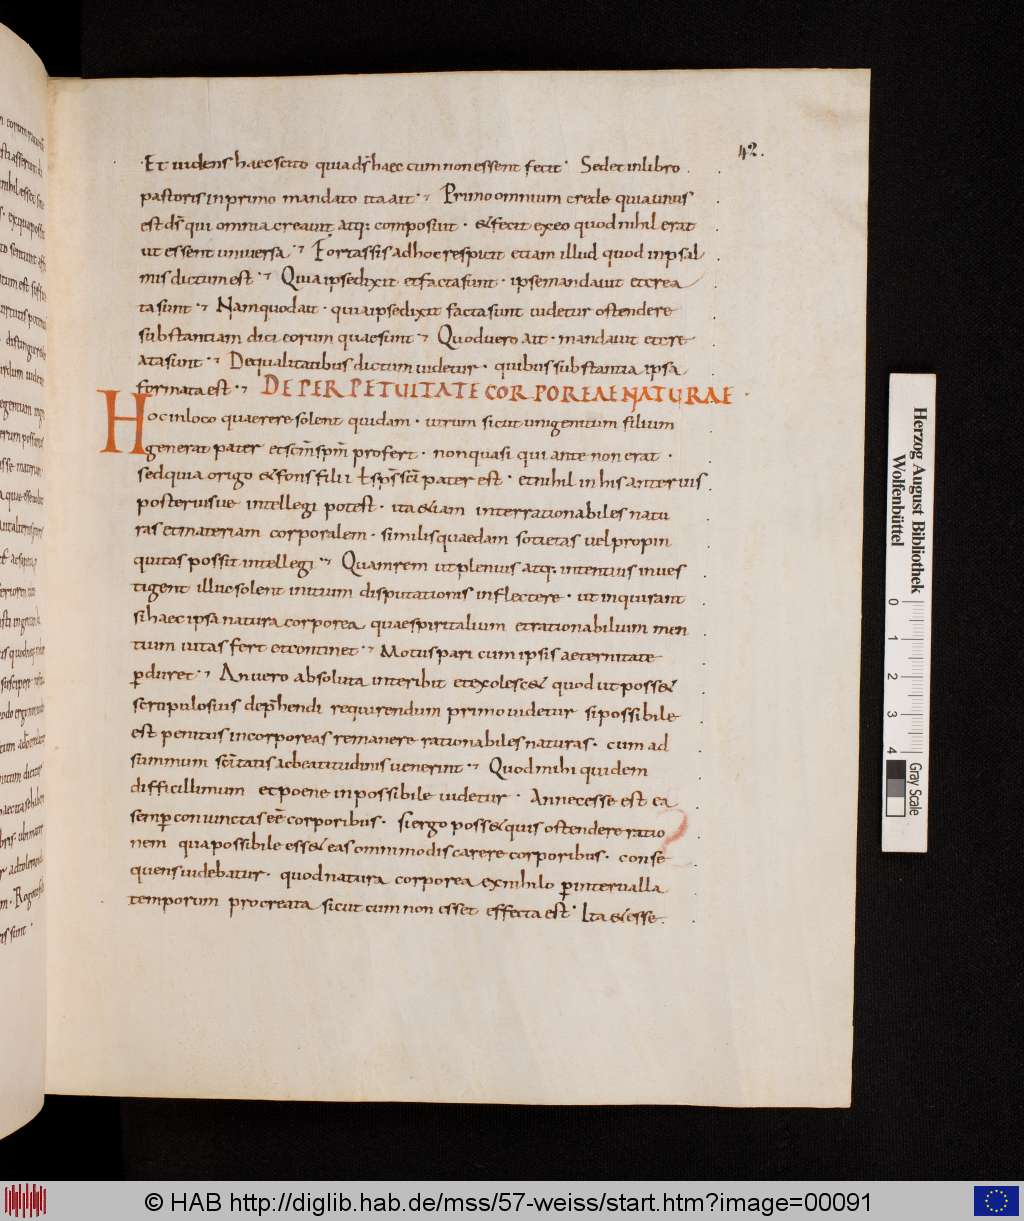 42.
Et uidens haec scito quia ds̄ haec cum non essent fecit · Sed et in libro
pastoris in primo mandato ita ait · Primo omnium crede quia unus
est ds̄ qui omnia creauit atq: composuit · & fecit ex eo quod nihil erat
ut essent uniuersa · Fortassis ad hoc respicit etiam illud quod in psal
mis dictum est · Quia ipse dixit et facta sunt · ipse mandauit et crea
ta sunt · Nam quod ait · quia ipse dixit facta sunt uidetur ostendere
substantiam dici eorum quae sunt · Quod uero ait · mandauit et cre
ata sunt · De qualitatibus dictum uidetur · quibus substantia ipsa
formata est · DE PERPETUITATE CORPOREAE NATURAE
Hoc in loco quaerere solent quidam · utrum sicut unigenitum filium
generat pater et scm̄ spm̄ profert · non quasi qui ante non erat ·
sed quia origo & fons filii ł sps̄ sc̄i pater est · et nihil in his anterius
posteriusue intellegi potest · ita &iam inter rationabiles natu
ras et materiam corporalem · similis quaedam societas uel propin
quitas possit intellegi · Quam rem ut plenius atq: intentius inues
tigent illuc solent initium disputationis inflectere · ut inquirant
si haec ipsa natura corporea quae spiritalium et rationabilium men
tium uitas fert et continet · Motus pari cum ipsis aeternitate
ꝑduret · An uero absoluta interibit et exolesc& quod ut poss&
scripulosius dep̄hendi requirendum primo uidetur si possibile
est penitus incorporeas remanere rationabiles naturas · cum ad
summum sc̄itatis ac beatitudinis uenerint · Quod mihi quidem
difficillimum et poene inpossibile uidetur · An necesse est eas
semꝑ coniunctas eē corporibus · si ergo poss& quis ostendere ratio
nem qua possibile ess& eas omnimodis carere corporibus · conse
quens uidebatur · quod natura corporea ex nihilo ꝑ interualla
temporum procreata sicut cum non esset effecta est · Ita & esse
Herzog August Bibliothek
Wolfenbüttel
0 1 2 3 4 Gray Scale
© HAB http://diglib.hab.de/mss/57-weiss/start.htm?image=00091